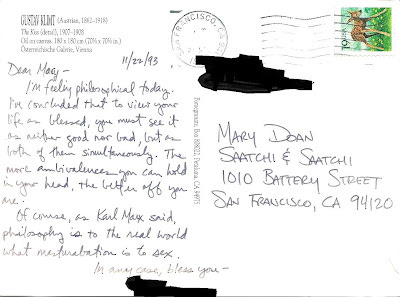 GUSTAV KLIMT (Austrian, 1862-1918)
The Kiss (detail), 1907-1908
Oil on canvas. 180 x 180 cm (70⅞ x 70⅞ in.)
Österreichische Galerie, Vienna
11/22/93
Dear Mary -
I'm feeling philosophical today.
I've concluded that to view your
life as blessed, you must see it
as neither good nor bad, but as
both of them simultaneously. The
more ambivalences you can hold
in your head, the better off you
are.
Of course, as Karl Marx said,
philosophy is to the real world
what masturbation is to sex.
In any case, bless you -
Pomegranate, Box 808022, Petaluma, CA 94975
FRANCISCO, CA
19
USA
MARY DOAN
SAATCHI & SAATCHI
1010 BATTERY STREET
SAN FRANCISCO, CA 94120